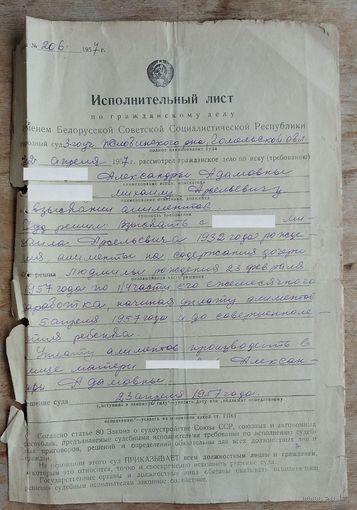 № 206 1957 г.
Исполнительный лист
по гражданскому делу
Именем Белорусской Советской Социалистической Республики
народный суд 3-го уч. Гомельской обл.
апреля 1957 г. рассмотрев гражданское дело по иску (требованию)
Александры Адамовны
Михаилу Арсеньевичу
о взыскании алиментов
сущность требования
Суд решил: Взыскать с Ми-
хаила Арсеньевича 1932 года рожде-
ния, алименты на содержания дочери
Людмилы рождения 23 февраля
1957 года по 1/4 части его ежемесячного
заработка, начиная уплату алиментов
5 апреля 1957 года и до совершенноле-
тия ребенка
Уплату алиментов производить в
лице матери Алексан-
дры Адамовны
решение суда 23 апреля 1957 года.
Согласно статье 80 Закона о судоустройстве Союза ССР, союзных и автономных
республик, предъявляемые судебными исполнителями требования по исполнению судеб-
ных приговоров, решений и определений обязательны для всех должностных лиц и
На основании этого суд ПРИКАЗЫВАЕТ всем должностным лицам и гражданам,
которым это относится, точно и своевременно исполнить решение суда.
Государственные органы и должностные лица обязаны оказывать
судебным исполнителям законное содействие.